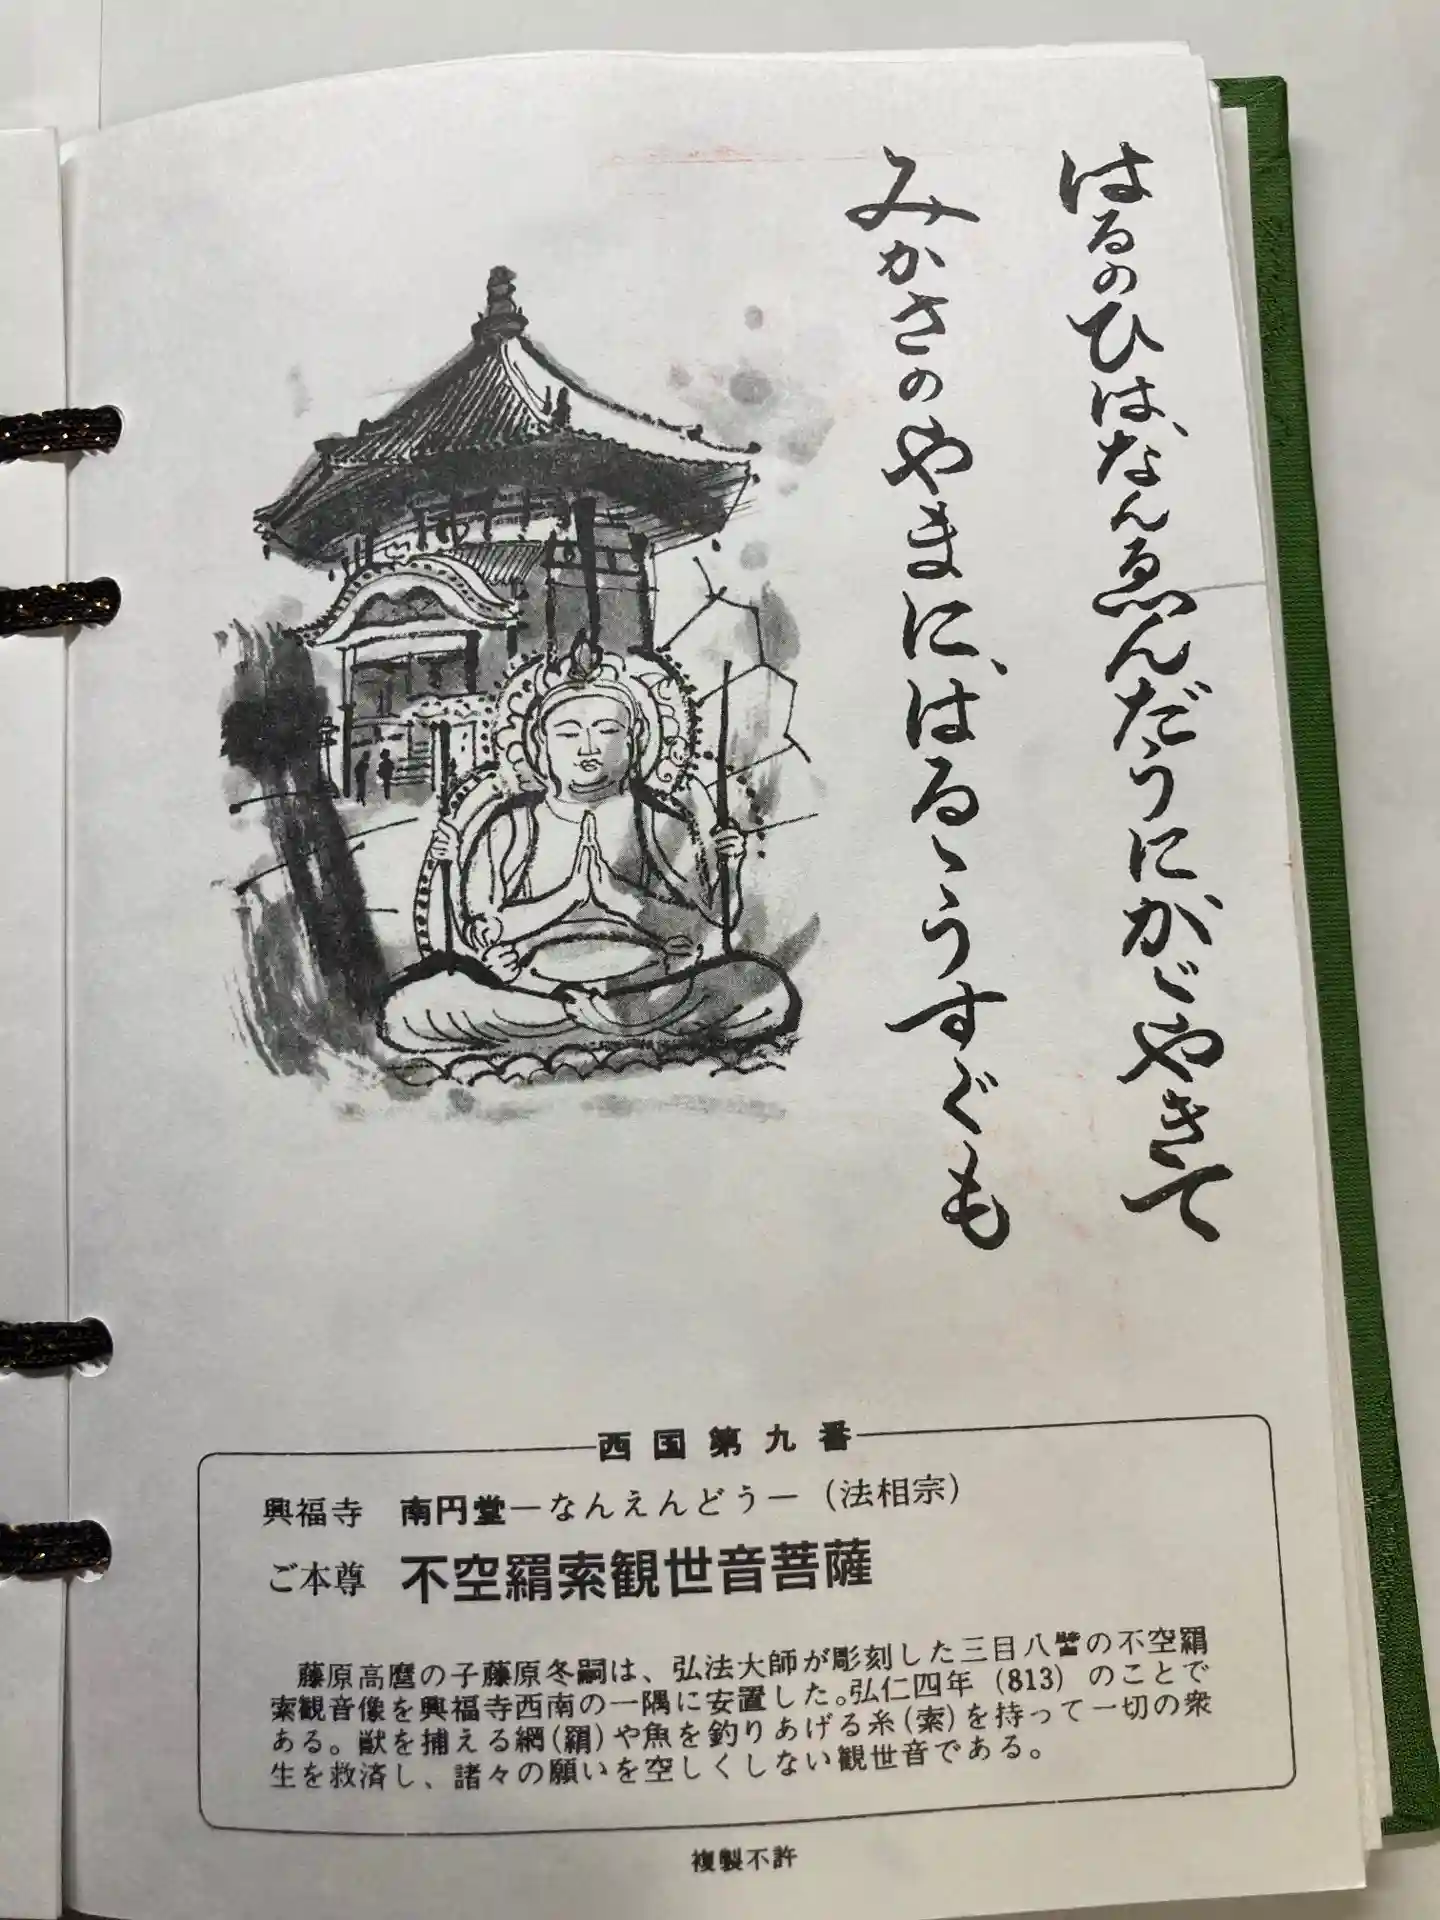 はるのひは、なんゑんだうにかゞやきて
みかさのやまに、はるゝうすぐも
西国第九番
興福寺 南円堂―なんえんどう―(法相宗)
ご本尊 不空羂索観世音菩薩
藤原高麿の子藤原冬嗣は、弘法大師が彫刻した三目八臂の不空羂
索観音像を興福寺西南の一隅に安置した。弘仁四年(813)のことで
ある。獣を捕える網(羂)や魚を釣りあげる糸(索)を持って一切の衆
生を救済し、諸々の願いを空しくしない観世音である。
複製不許